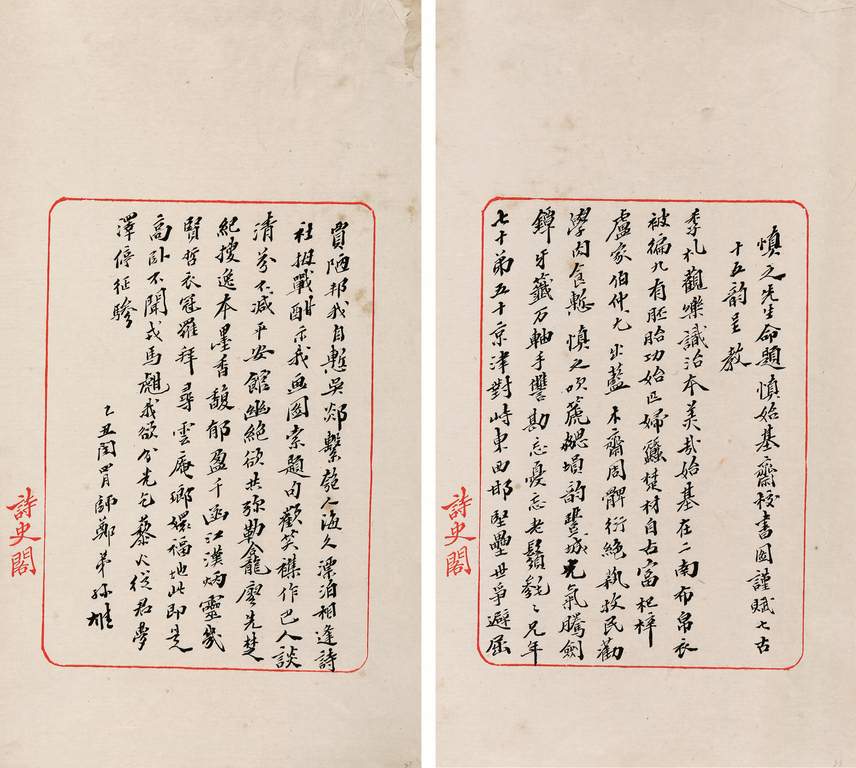 慎之先生命題慎始基齋校書圖謹賦七古
十五韵呈教
季札觀樂識治本美哉始基在二南布帛衣
被徧九有胚胎功始匹婦蠶楚材自古富杞梓
盧家伯仲尤出藍木齋周髀衍絕執牧民勸
學肉食慙慎之吹篪摠塤韵豐城光氣騰劍
鐔牙籤万軸手讐勘忘憂忘老鬚毿々兄年
七十弟五十京津對峙東西邯堅壘世爭避屈
賈陋邦我自慙吳郯繫匏人海久漂泊相逢詩
社拇戰酣示我畫圖索題句歡笑雜作巴人談
清芬不減平安館幽絕欲共弥勒龕龍壁先楚
紀搜逸本墨香馥郁盈千函江漢炳靈幾
賢哲衣冠羅拜尋雲庵瑯嬛福地此即是
高臥不聞戎馬颿我欲分光乞藜火從君夢
澤停征驂
乙丑閏四月師鄭弟孫雄
詩史閣
詩史閣